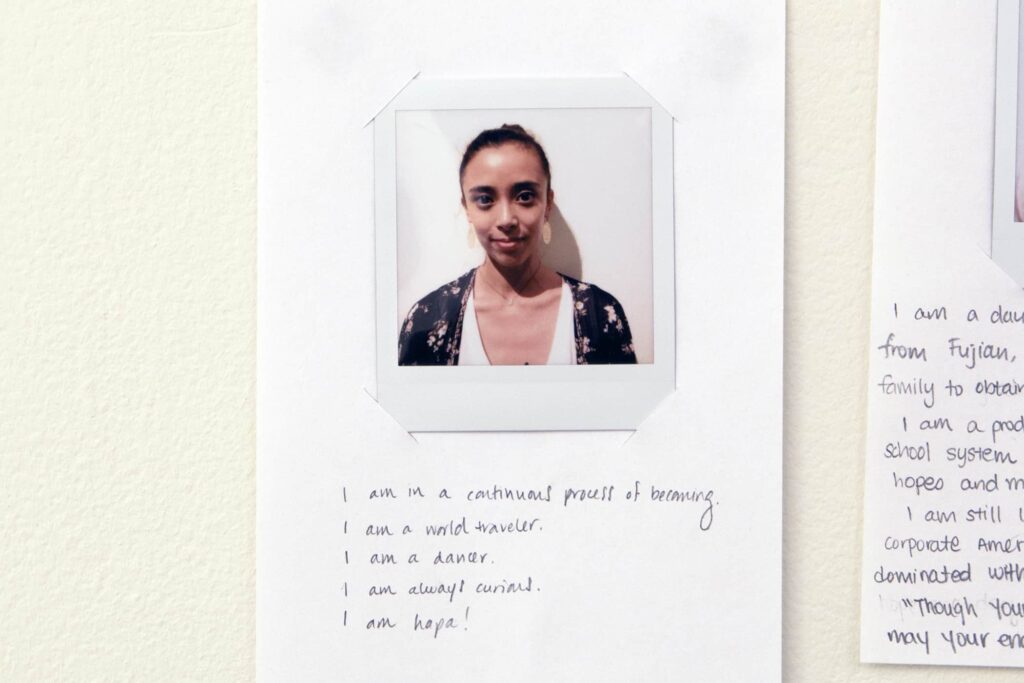 I am in a continuous process of becoming.
I am a world traveler.
I am a dancer.
I am always curious.
I am hapa!
I am a dau
from Fujian,
family to obtain
I am a prod
school system
hopes and m
I am still l
corporate Amer
dominated with
"Though your
may your end